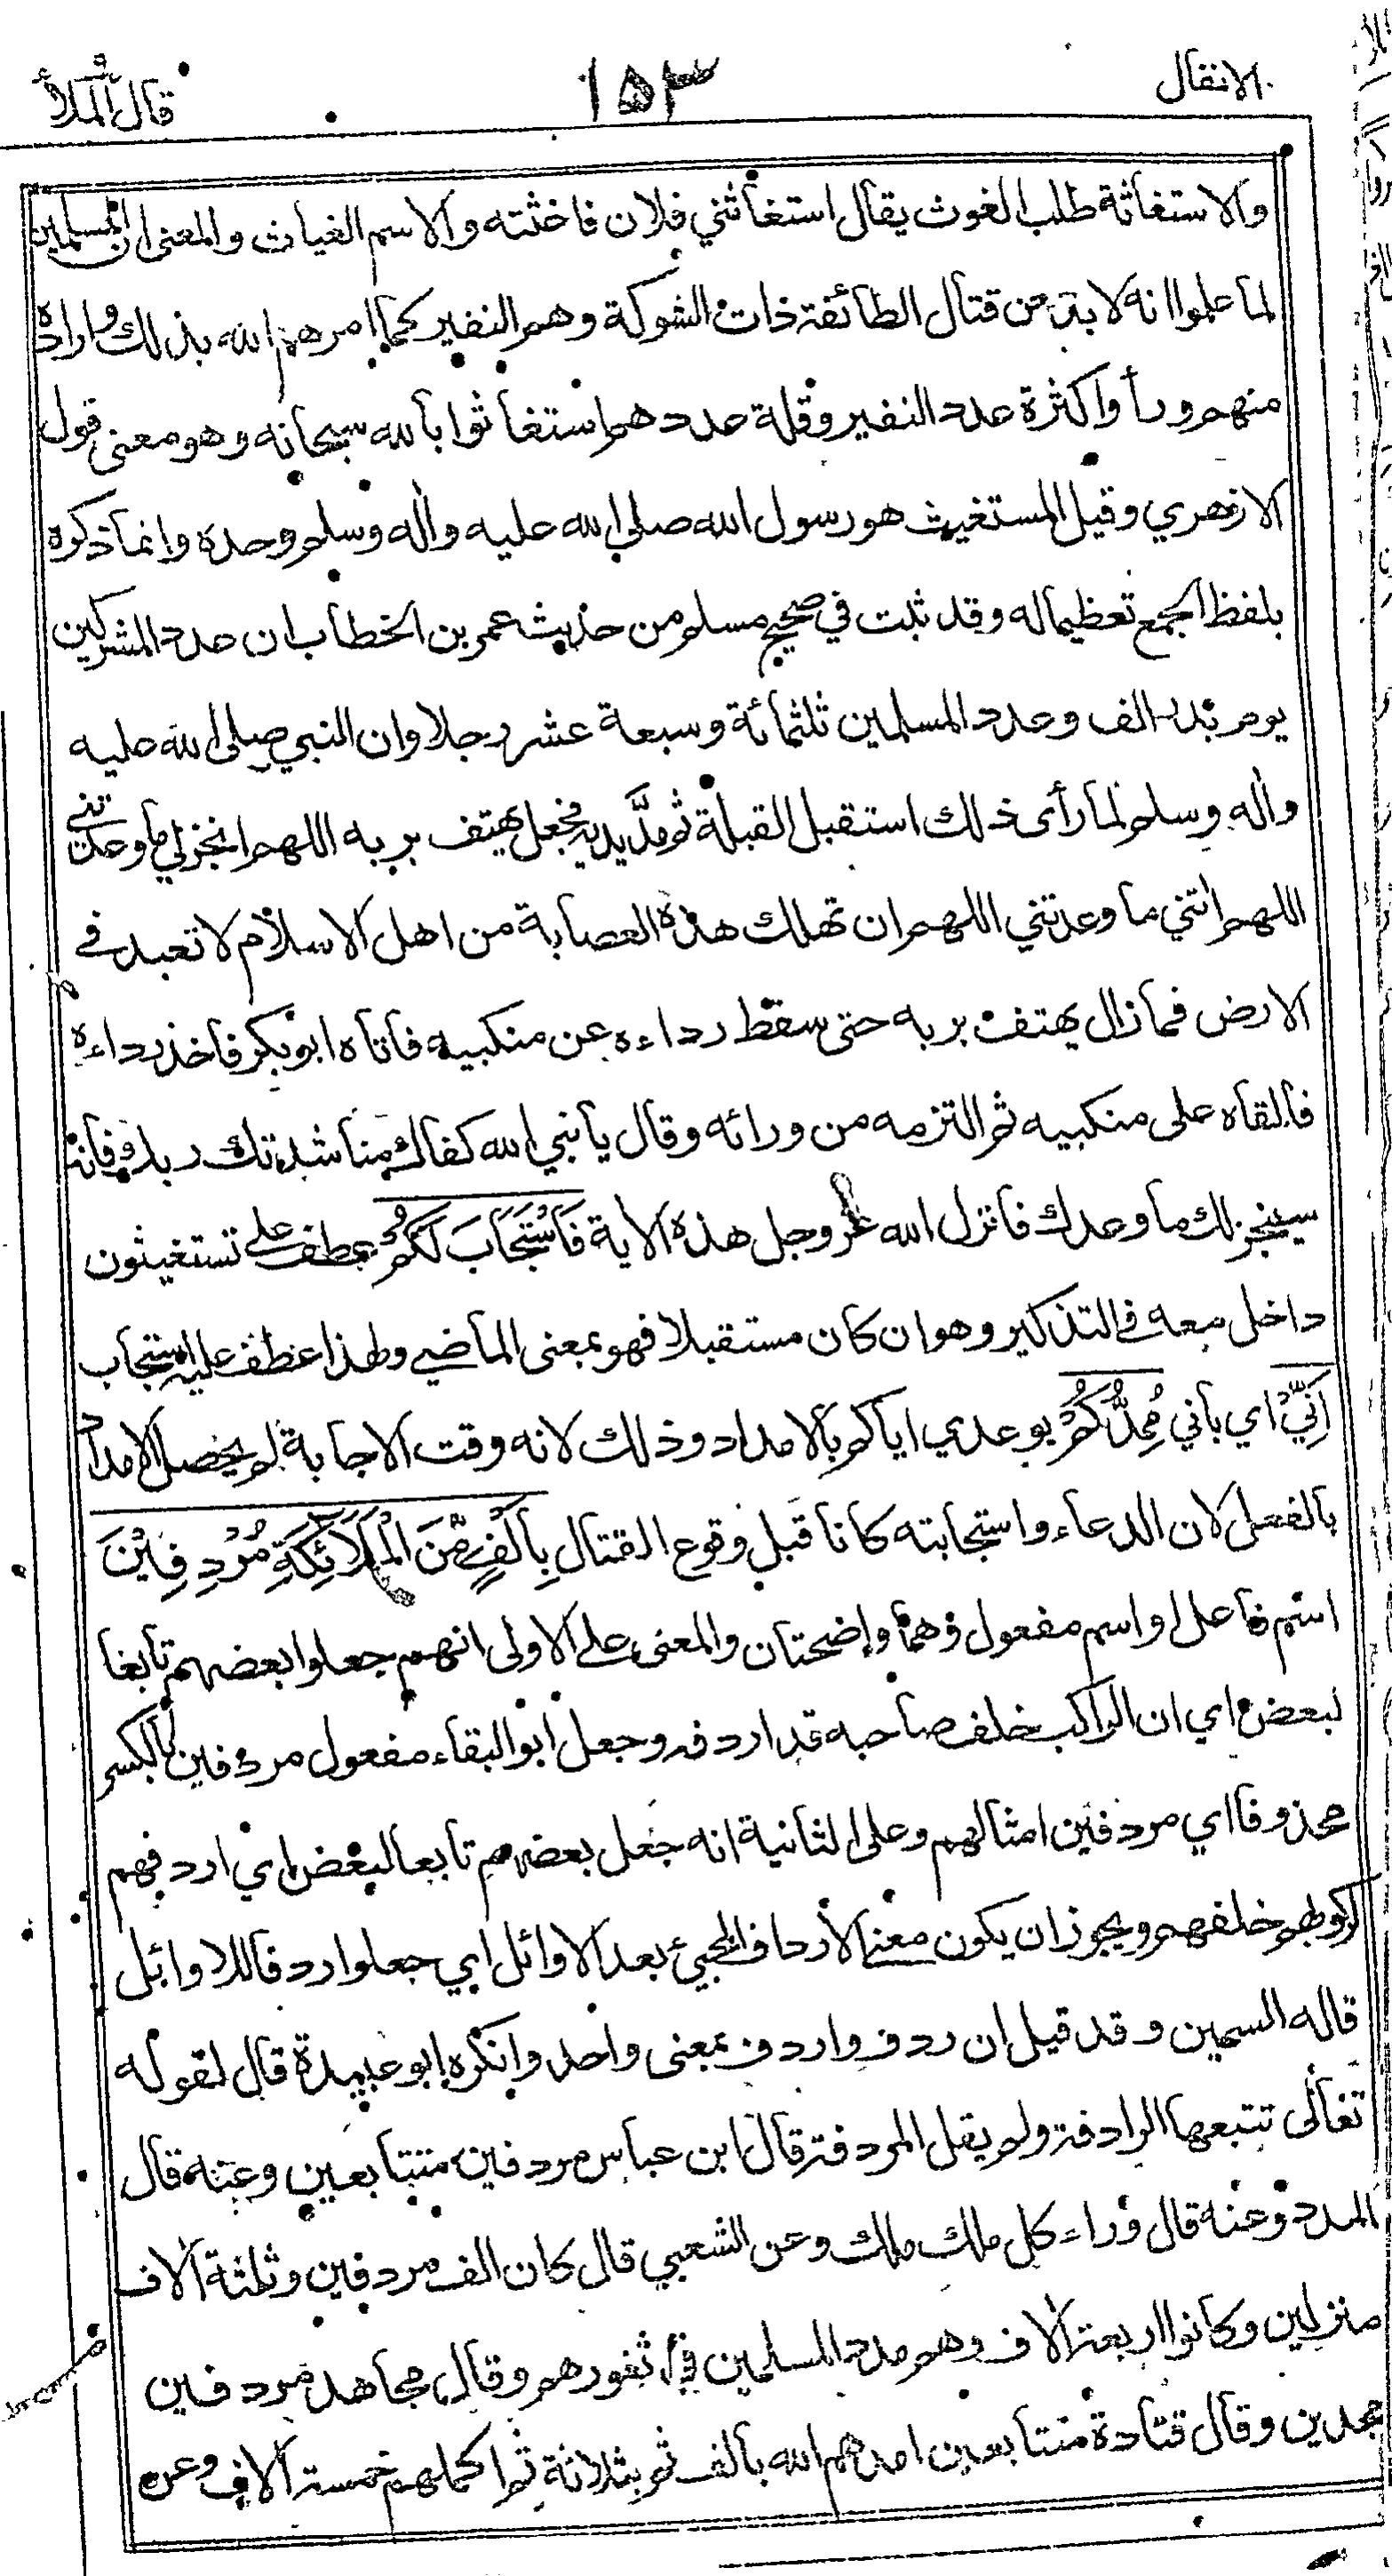 الانفال ١٥٣ قال الملأ
والاستغاثة طلب الغوث يقال استغاثني فلان فاغثته والاسم الغياث والمعنى ان المسلمين
لما علموا انه لا بد من قتال الطائفة ذات الشوكة وهم النفير كما امرهم الله بذلك واراده
منهم ورأوا كثرة عدد النفير وقلة عددهم استغاثوا بالله سبحانه وهو معنى قول
الازهري وقيل المستغيث هو رسول الله صلى الله عليه واٰله وسلم وحده وانما ذكره
بلفظ الجمع تعظيما له وقد ثبت في صحيح مسلم من حديث عمر بن الخطاب ان عدد المشركين
يوم بدر الف وعدد المسلمين ثلثمائة وسبعة عشر رجلا وان النبي صلى الله عليه
واٰله وسلم لما رأى ذلك استقبل القبلة ثم مدَّ يديه فجعل يهتف بربه اللهم انجز لي ما وعدتني
اللهم اتني ما وعدتني اللهم ان تهلك هذه العصابة من اهل الاسلام لا تعبد في
الارض فما زال يهتف بربه حتى سقط رداءه عن منكبيه فاتاه ابو بكر فاخذ رداءه
فالقاه على منكبيه ثم التزمه من ورائه وقال يا نبي الله كفاك مناشدتك ربك فانه
سينجز لك ما وعدك فانزل الله عز وجل هذه الاية فَاسْتَجَابَ لَكُمْ عطف على تستغيثون
داخل معه في التذكير وهو ان كان مستقبلا فهو بمعنى الماضي ولهذا عطف عليه استجاب
اَنِّيْ اي باني مُمِدُّكُمْ بوعدي اياكم بالامداد وذلك لانه وقت الاجابة لم يحصل الامداد
بالفعل لان الدعاء واستجابته كانا قبل وقوع القتال بِاَلْفٍ مِّنَ الْمَلَائِكَةِ مُرْدِفِيْنَ
اسم فاعل او اسم مفعول وهما واضحتان والمعنى على الاولى انهم جعلوا بعضهم تابعا
لبعض اي ان الراكب خلف صاحبه قد اردفه وجعل ابو البقاء مفعول مردفين بالكسر
محذوفا اي مردفين امثالهم وعلى الثانية انه جعل بعضهم تابعا لبعض اي اردفهم
ركوبهم خلفهم ويجوز ان يكون معنى الارداف المجيئ بعد الاوائل اي جعلوا ردفا للاوائل
قاله السمين وقد قيل ان ردف واردف بمعنى واحد وانكره ابو عبيدة قال لقوله
تعالى تتبعها الرادفة ولم يقل المردفة قال ابن عباس مردفين متتابعين وعنه قال
المدد وعنه قال وراء كل ملك ملك وعن الشعبي قال كان الف مردفين وثلثة اٰلاف
منزلين وكانوا اربعة اٰلاف وهم مدد المسلمين في ثغورهم وقال مجاهد مردفين
ممدين وقال قتادة متتابعين امدهم الله بالف ثم بثلاثة ثم اكملهم خمسة اٰلاف وعن